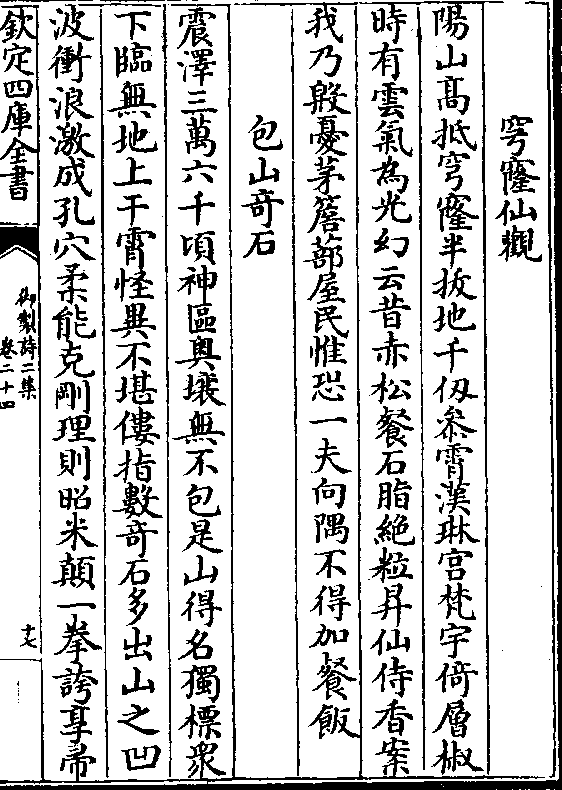 穹窿仙觀
陽山髙抵穹窿半拔地千仭叅霄漢琳宫梵宇倚層椒
時有雲氣為光幻云昔赤松餐石脂絶粒昇仙侍香案
我乃殷憂茅簷蔀屋民惟恐一夫向隅不得加餐飯
包山奇石
震澤三萬六千頃神區奥壤無不包是山得名獨標衆
下臨無地上干霄怪異不堪僂指數奇石多出山之凹
波衝浪激成孔穴柔能克剛理則昭米顛一拳誇享帚
欽定四庫全書
御製詩二集
卷二十四
十七